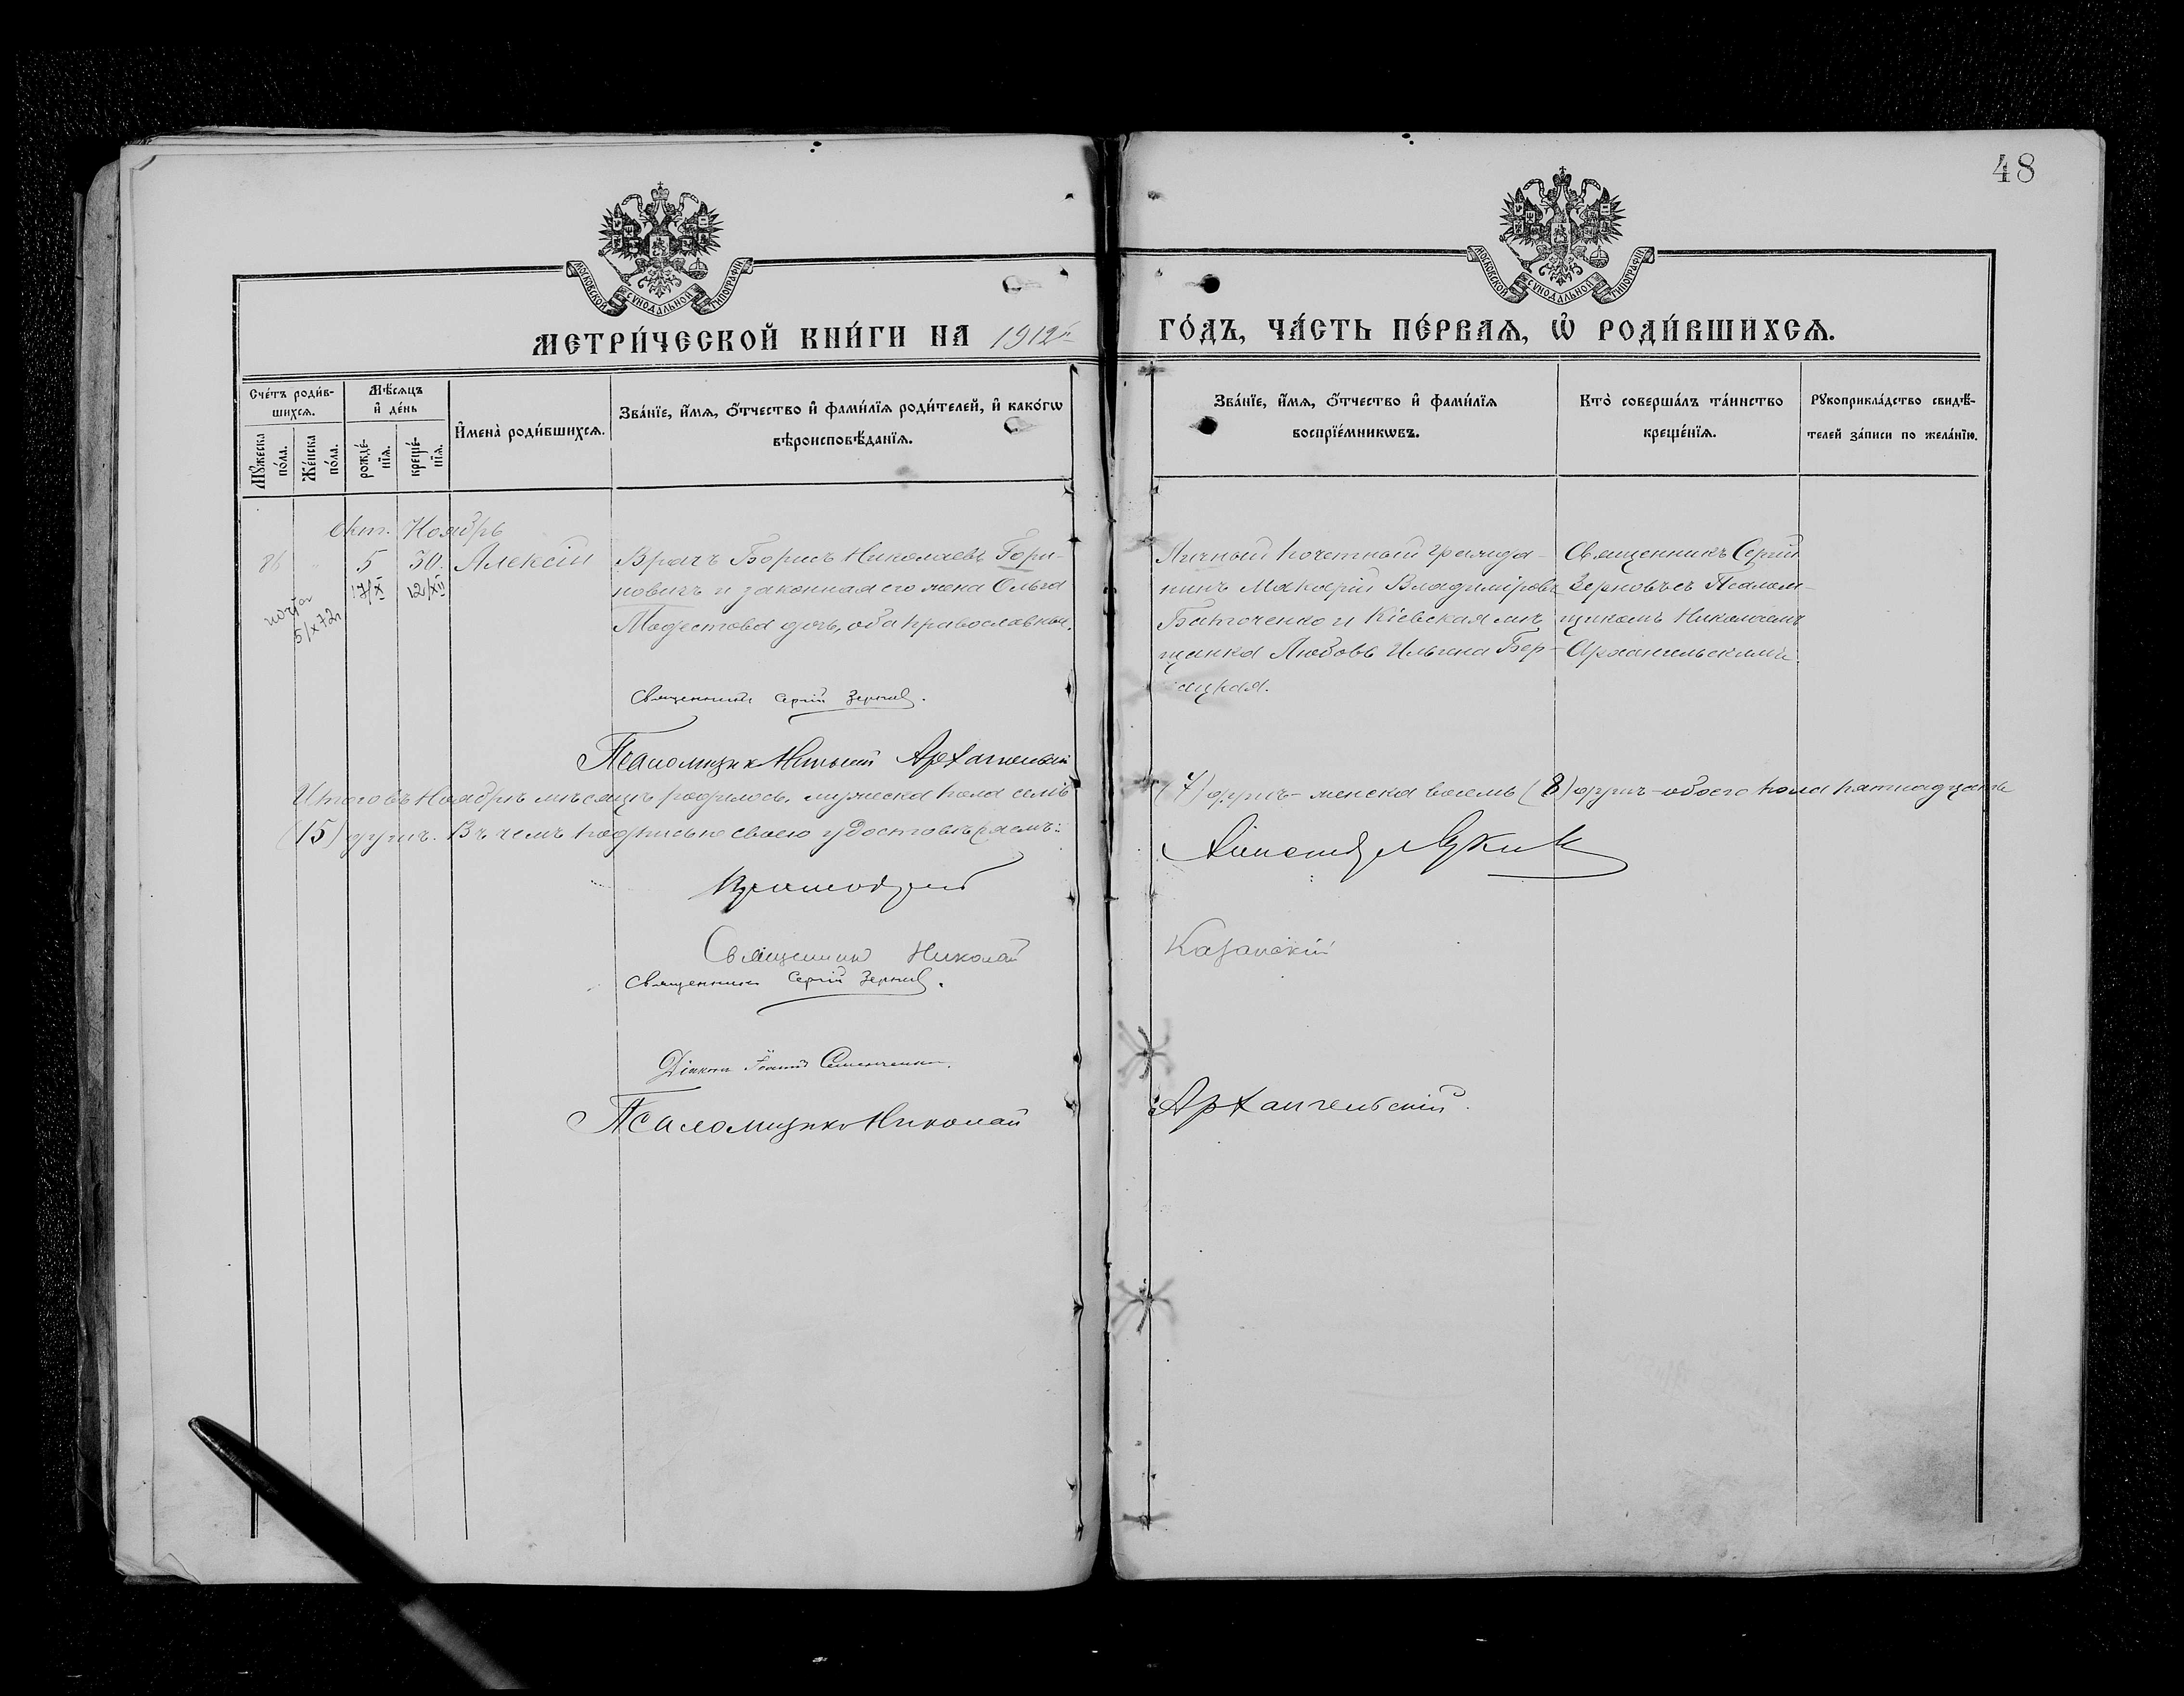 48
МОСКОВСКОЙ СѴНОДАЛЬНОЙ ТИПОГРАФІИ
МОСКОВСКОЙ СѴНОДАЛЬНОЙ ТИПОГРАФІИ
МЕТРИ́ЧЕСКОЙ КНИ́ГИ НА 1912й
ГО́ДЪ, ЧА́СТЬ ПЕ́РВАѦ, Ѡ҆ РОДИ́ВШИХСѦ.
Сче́тъ роди́в-
шихсѧ.
Мꙋ́жеска по́ла.
Же́нска по́ла.
Мѣ́сѧцъ
и҆ де́нь
рожде́-
нїѧ.
креще́-
нїѧ.
И҆мена̀ роди́вшихсѧ.
Зва́нїе, и҆́мѧ, ѻ҆́тчество и҆ фами́лїѧ роди́телей, и҆ како́гѡ
вѣроисповѣ́данїѧ.
Зва́нїе, и҆́мѧ, ѻ҆́тчество и҆ фами́лїѧ
воспрїе́мникѡвъ.
Кто̀ соверша́лъ та́инство
креще́нїѧ.
Рꙋкоприкла́дство свидѣ́-
телей за́писи по жела́нїю.
Окт. Ноябрь
86 " 5 30. Алексій
17/X 12/XII
5/X 72г
Врачъ Борисъ Николаевъ Гори-
новичъ и законная его жена Ольга
Модестова дочь, оба православные.
Личный почетный гражда-
нинъ Макарій Владиміровъ
Баточенко и Кіевская мѣ-
щанка Любовь Ильина Бер-
ацкая.
Священникъ Сергій
Зерновъ съ Псалом-
щикомъ Николаемъ
Архангельскимъ.
Священникъ Сергій Зерновъ.
Псаломщикъ Николай Архангельскій
Итого въ Ноябрѣ мѣсяцѣ родилось, мужеска пола семь (7) душъ- женска восемь (8) душъ-обоего пола пятнадцать
(15) душъ. Въ чемъ подписью своею удостовѣряемъ:
Священникъ Николай Казанскій
Священникъ Сергій Зерновъ.
Діаконъ Іоаннъ
Псаломщикъ Николай Архангельскій.